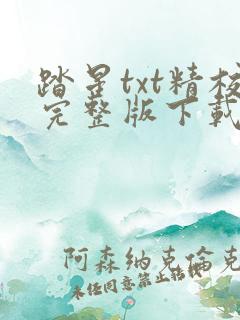 踏星txt精校
完整版下载
阿森纳克伦克
未经同意禁止转载